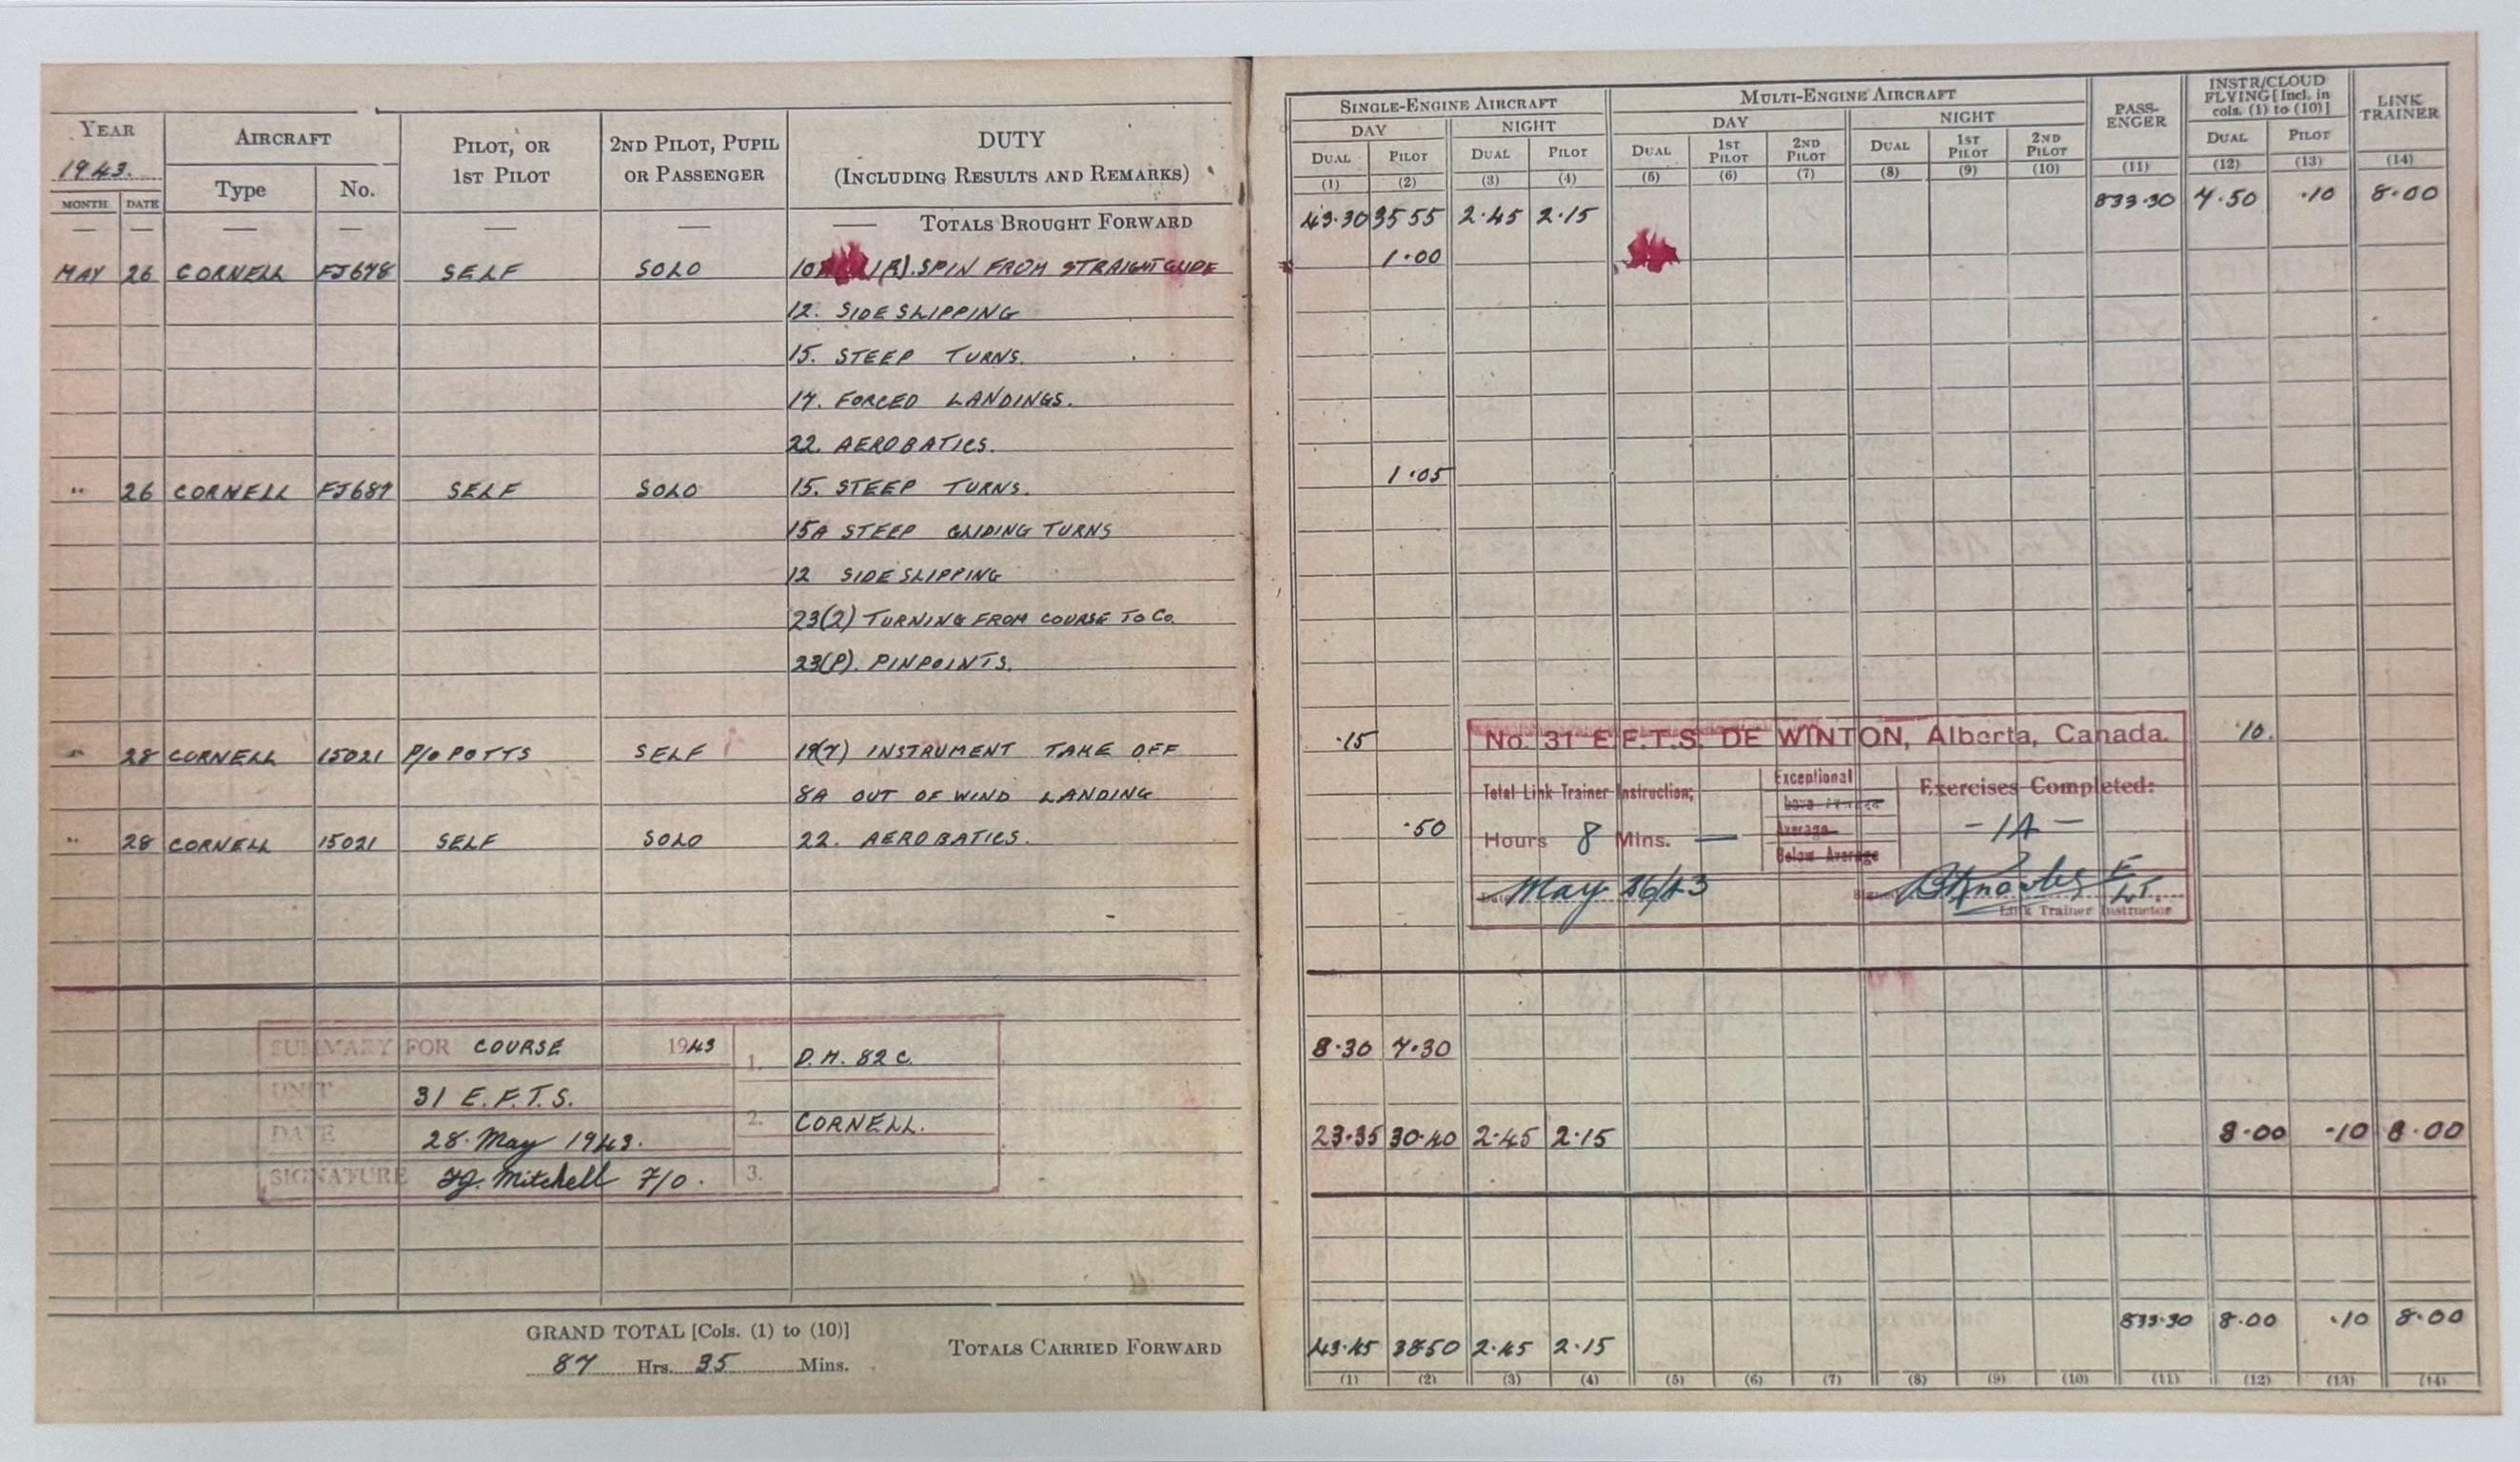 YEAR 1943.
AIRCRAFT
PILOT, OR 1ST PILOT
2ND PILOT, PUPIL OR PASSENGER
DUTY
(INCLUDING RESULTS AND REMARKS)
MONTH DATE Type No.
SINGLE-ENGINE AIRCRAFT
MULTI-ENGINE AIRCRAFT
PASS-ENGER
INSTR/CLOUD FLYING [Incl. in cols. (1) to (10)]
LINK TRAINER
DAY NIGHT DAY NIGHT
DUAL PILOT DUAL PILOT DUAL 1ST PILOT 2ND PILOT DUAL 1ST PILOT 2ND PILOT DUAL PILOT
(1) (2) (3) (4) (5) (6) (7) (8) (9) (10) (11) (12) (13) (14)
— — — — — — — TOTALS BROUGHT FORWARD 43.30 35 55 2.45 2.15 833.30 7.50 .10 8.00
MAY 26 CORNELL FJ678 SELF SOLO SPIN FROM STRAIGHT GLIDE 1.00
12. SIDESLIPPING
15. STEEP TURNS.
17. FORCED LANDINGS.
22. AEROBATICS.
" 26 CORNELL FJ687 SELF SOLO 15. STEEP TURNS. 1.05
15A STEEP GLIDING TURNS
12 SIDESLIPPING
23(2) TURNING FROM COURSE TO CO.
23(P). PINPOINTS.
" 28 CORNELL 15021 P/O POTTS SELF 19(7) INSTRUMENT TAKE OFF .15 .10.
8A OUT OF WIND LANDING
" 28 CORNELL 15021 SELF SOLO 22. AEROBATICS. .50
No. 31 E.F.T.S. DE WINTON, Alberta, Canada.
Total Link Trainer Instruction;
Exceptional
Average
Below Average
Exercises Completed:
Hours 8 Mins. —
-1A-
Date May 26/43
F/LT.
Link Trainer Instructor
SUMMARY FOR COURSE 1943 1. D.H. 82 C. 8.30 7.30
UNIT 31 E.F.T.S.
DATE 28. May 1943. 2. CORNELL. 23.35 30.40 2.45 2.15 8.00 .10 8.00
SIGNATURE Mitchell F/O. 3.
GRAND TOTAL [Cols. (1) to (10)]
87 Hrs. 35 Mins.
TOTALS CARRIED FORWARD 43.45 38 50 2.45 2.15 833.30 8.00 .10 8.00
(1) (2) (3) (4) (5) (6) (7) (8) (9) (10) (11) (12) (13) (14)